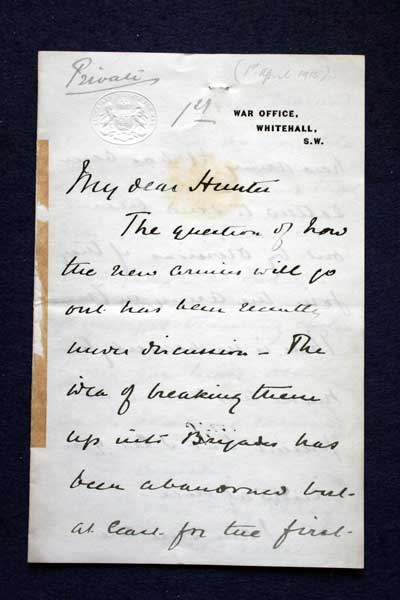 Private
1st
WAR OFFICE,
WHITEHALL,
S.W.
My dear Hunter
The question of how
the new armies will go
out has been recently
under discussion – The
idea of breaking them
up into Brigades has
been abandoned but
at least for the first